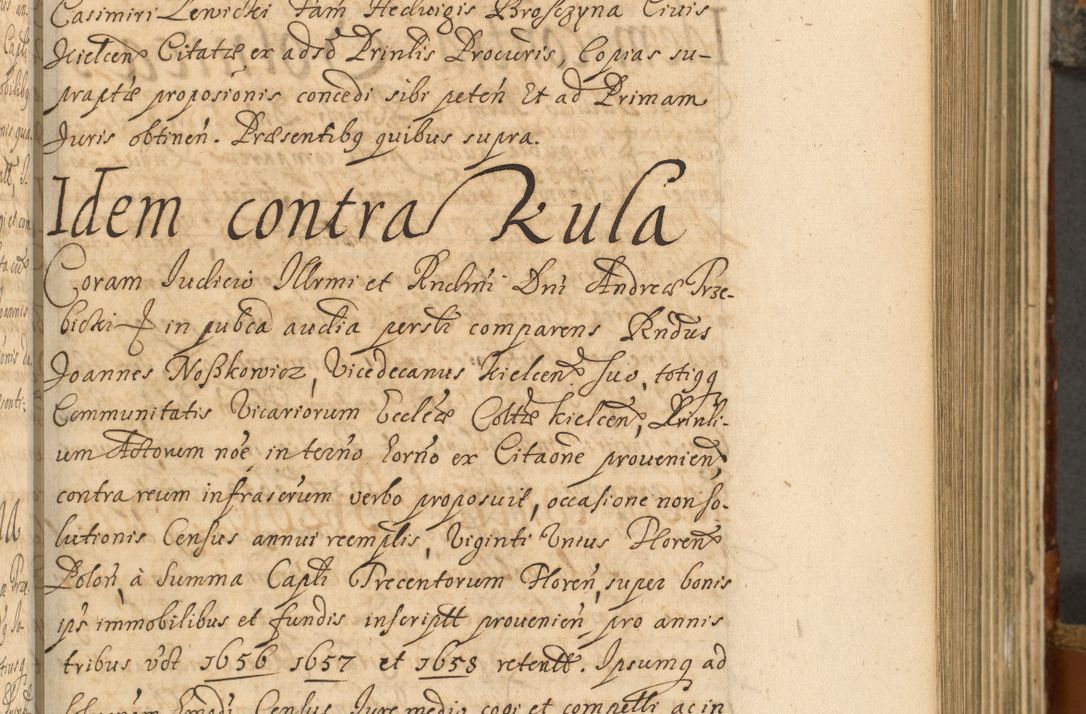 Casimiri Lewicki Fam Hedwigis Brosczyna Civis
Kielcen Citatæ ex adso Prinlis Procuris, Copias su-
praptæ proposionis concedi sibi peteń Et ad Primam
Juris obtineń. Præsentibq quibus supra.
Idem contra Kula
Coram Iudicio Illrmi et Rndmi Dni Andreæ Prze-
bicki in pubca audia persti comparens Rndus
Joannes Noßkowicz, Vicedecanus Kielcen. Suo, totiqq
Communitatis Vicariorum Eccleæ Coltæ Kielcen, Prinli-
um Actorum noe in terno horno ex Citaone provenien
contra reum infrascrum verbo proposuit, occasione non so-
lutionis Census annui reemplis, Viginti Unius Floren
Poloń, à Summa Capli Trecentorum Floreń, super bonis
ips immobilibus et fundis inscriptt provenień pro annis
tribus vdt 1656 1657 et 1658 retentt. Ipsumq ad
Census Jure medio cogi et compelli ac in